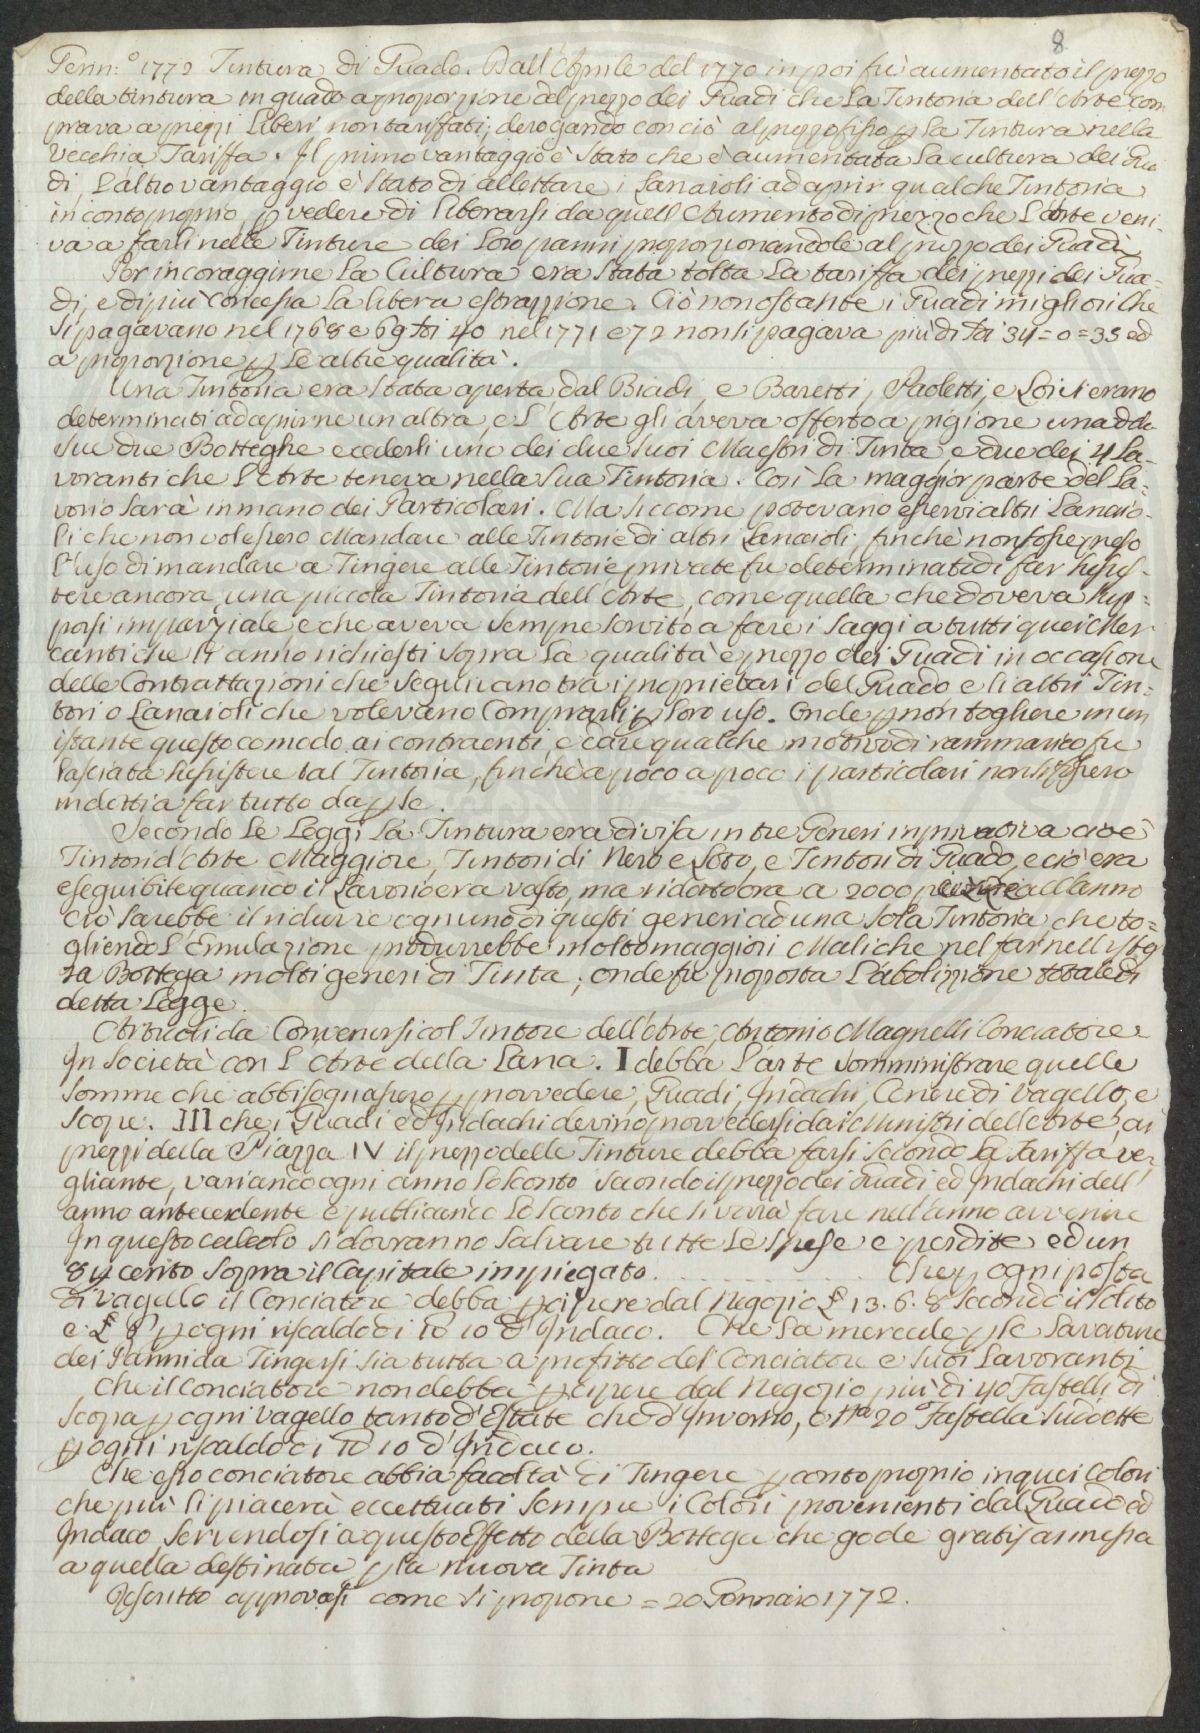 8
Genn:º 1772 Tintura di Guado. Dall'Aprile del 1770 in poi fù aumentato il prezzo
della tintura in guado a proporzione del prezzo dei Guadi che La Tintoria dell'Arte com
prava a prezzi Liberi non tariffati; derogando con ciò al prezzo fisso p La Tintura nella
Vecchia Tariffa. Il primo vantaggio è Stato che è aumentata La cultura dei Gua
di, L'altro vantaggio è Stato di allettare i Lanaioli ad aprir qualche Tintoria
in conto proprio, p vedere di liberarsi da quell'Aumento di prezzo che L'Arte veni-
va a farli nelle Tinture dei Loro panni proporzionandole al prezzo dei Guadi
Per incoraggirne La Cultura era Stata tolta La tariffa dei prezzi dei Gua-
di, e di più Concessa La libera estrazzione. Ciò non ostante i Guadi migliori che
Si pagavano nel 1768 e 69 40 nel 1771 e 72 non si pagava più di 34=0=35 ed
a proporzione p Le altre qualità.
Una Tintoria era Stata aperta dal Biadi, e Baretti, Paoletti, e Lori S'erano
determinati ad aprirne un altra, e L'Arte gli aveva offerto a pigione una delle
Sue due Botteghe e cederli uno dei due Suoi Maestri di Tinta, e due dei 4 La-
voranti che L'Arte teneva nella Sua Tintoria. Così La maggior parte del La-
vorio Sarà in mano dei Particolari. Ma siccome potevano esservi altri Lanaio-
li che non volessero Mandare alle Tintorie di altri Lanaioli, finchè non fosse preso
L'uso di mandare a Tingere alle Tintorie private fu determinato di far Susis-
tere ancora una piccola Tintoria dell'Arte, come quella che doveva Sup-
porsi imparziale, e che aveva Sempre Servito a fare i Saggi a tutti quei Mer
canti che L'anno richiesti Sopra La qualità e prezzo dei Guadi in occasione
delle Contrattazioni che Seguivano tra i proprietari del Guado e li altri Tin-
tori o Lanaioli che volevano Comprarli p Loro uso. Onde p non togliere in un
istante questo comodo ai contraenti, e dare qualche motivo di rammarico fu
Lasciata Susistere tal Tintoria, finchè a poco a poco i particolari non Si fossero
indotti a far tutto da p Se.
Secondo Le Leggi La Tintura era divisa in tre Generi in privativa cioè
Tintori d'Arte Maggiore, Tintori di Nero e Loto, e Tintori di Guado, e ciò era
eseguibile quando il Lavorio era vasto, ma ridotto ora a 2000 all'anno
Ciò Sarebbe il ridurre ognuno di questi generi ad una Sola Tintoria che to-
gliendo L'Emulazione produrrebbe molto maggiori Mali che nel far nell'istes
sa Bottega molti generi di Tinta; onde fu proposta L'abolizzione totale di
detta Legge.
Articoli da Convenirsi col Tintore dell'Arte, Antonio Magnelli Conciatore
In Società con L'Arte della Lana. I debba L'arte Somministrare quelle
Somme che abbisognassero p provvedere, Guadi, Indachi, Cenere di Vagello, e
Scope. III che i Guadi ed Indachi devino provvedersi dai Ministri dell'Arte, ai
prezzi della Piazza IV il prezzo delle Tinture debba farsi Secondo La Tariffa ve-
gliante, variando ogni anno Lo Sconto Secondo il prezzo dei Guadi ed Indachi dell'
anno antecedente e pubblicando Lo Sconto che Si vorrà fare nell'anno avvenire
In questo calcolo Si dovranno Salvare tutte Le Spese e perdite ed un
8 p cento Sopra il Capitale impiegato. . . . . . . . . . . . Che p ogni posta
di vagello il Conciatore debba p cipere dal Negozio £ 13. 6. 8 Secondo il Solito
e £ p ogni riscaldo di 10 d'Indaco. Che La mercede p le Lavature
dei Panni da Tingersi Sia tutta a profitto del Conciatore e Suoi Lavoranti
Che il Conciatore non debba p cipere dal Negozio più di 40 Fastella di
Scopa p ogni Vagello tanto d'Estate che d'Inverno, e 20 Fastella Suddette
p ogni riscaldo di 10 d'Indaco.
Che esso Conciatore abbia facoltà di Tingere p conto proprio in quei Colori
che più li piacerà eccettuati Sempre i Colori provenienti dal Guado ed
Indaco Servendosi a questo Effetto della Bottega che gode gratis annessa
a quella destinata p la nuova Tinta
Rescritto approvasi come Si propone = 20 Gennaio 1772.